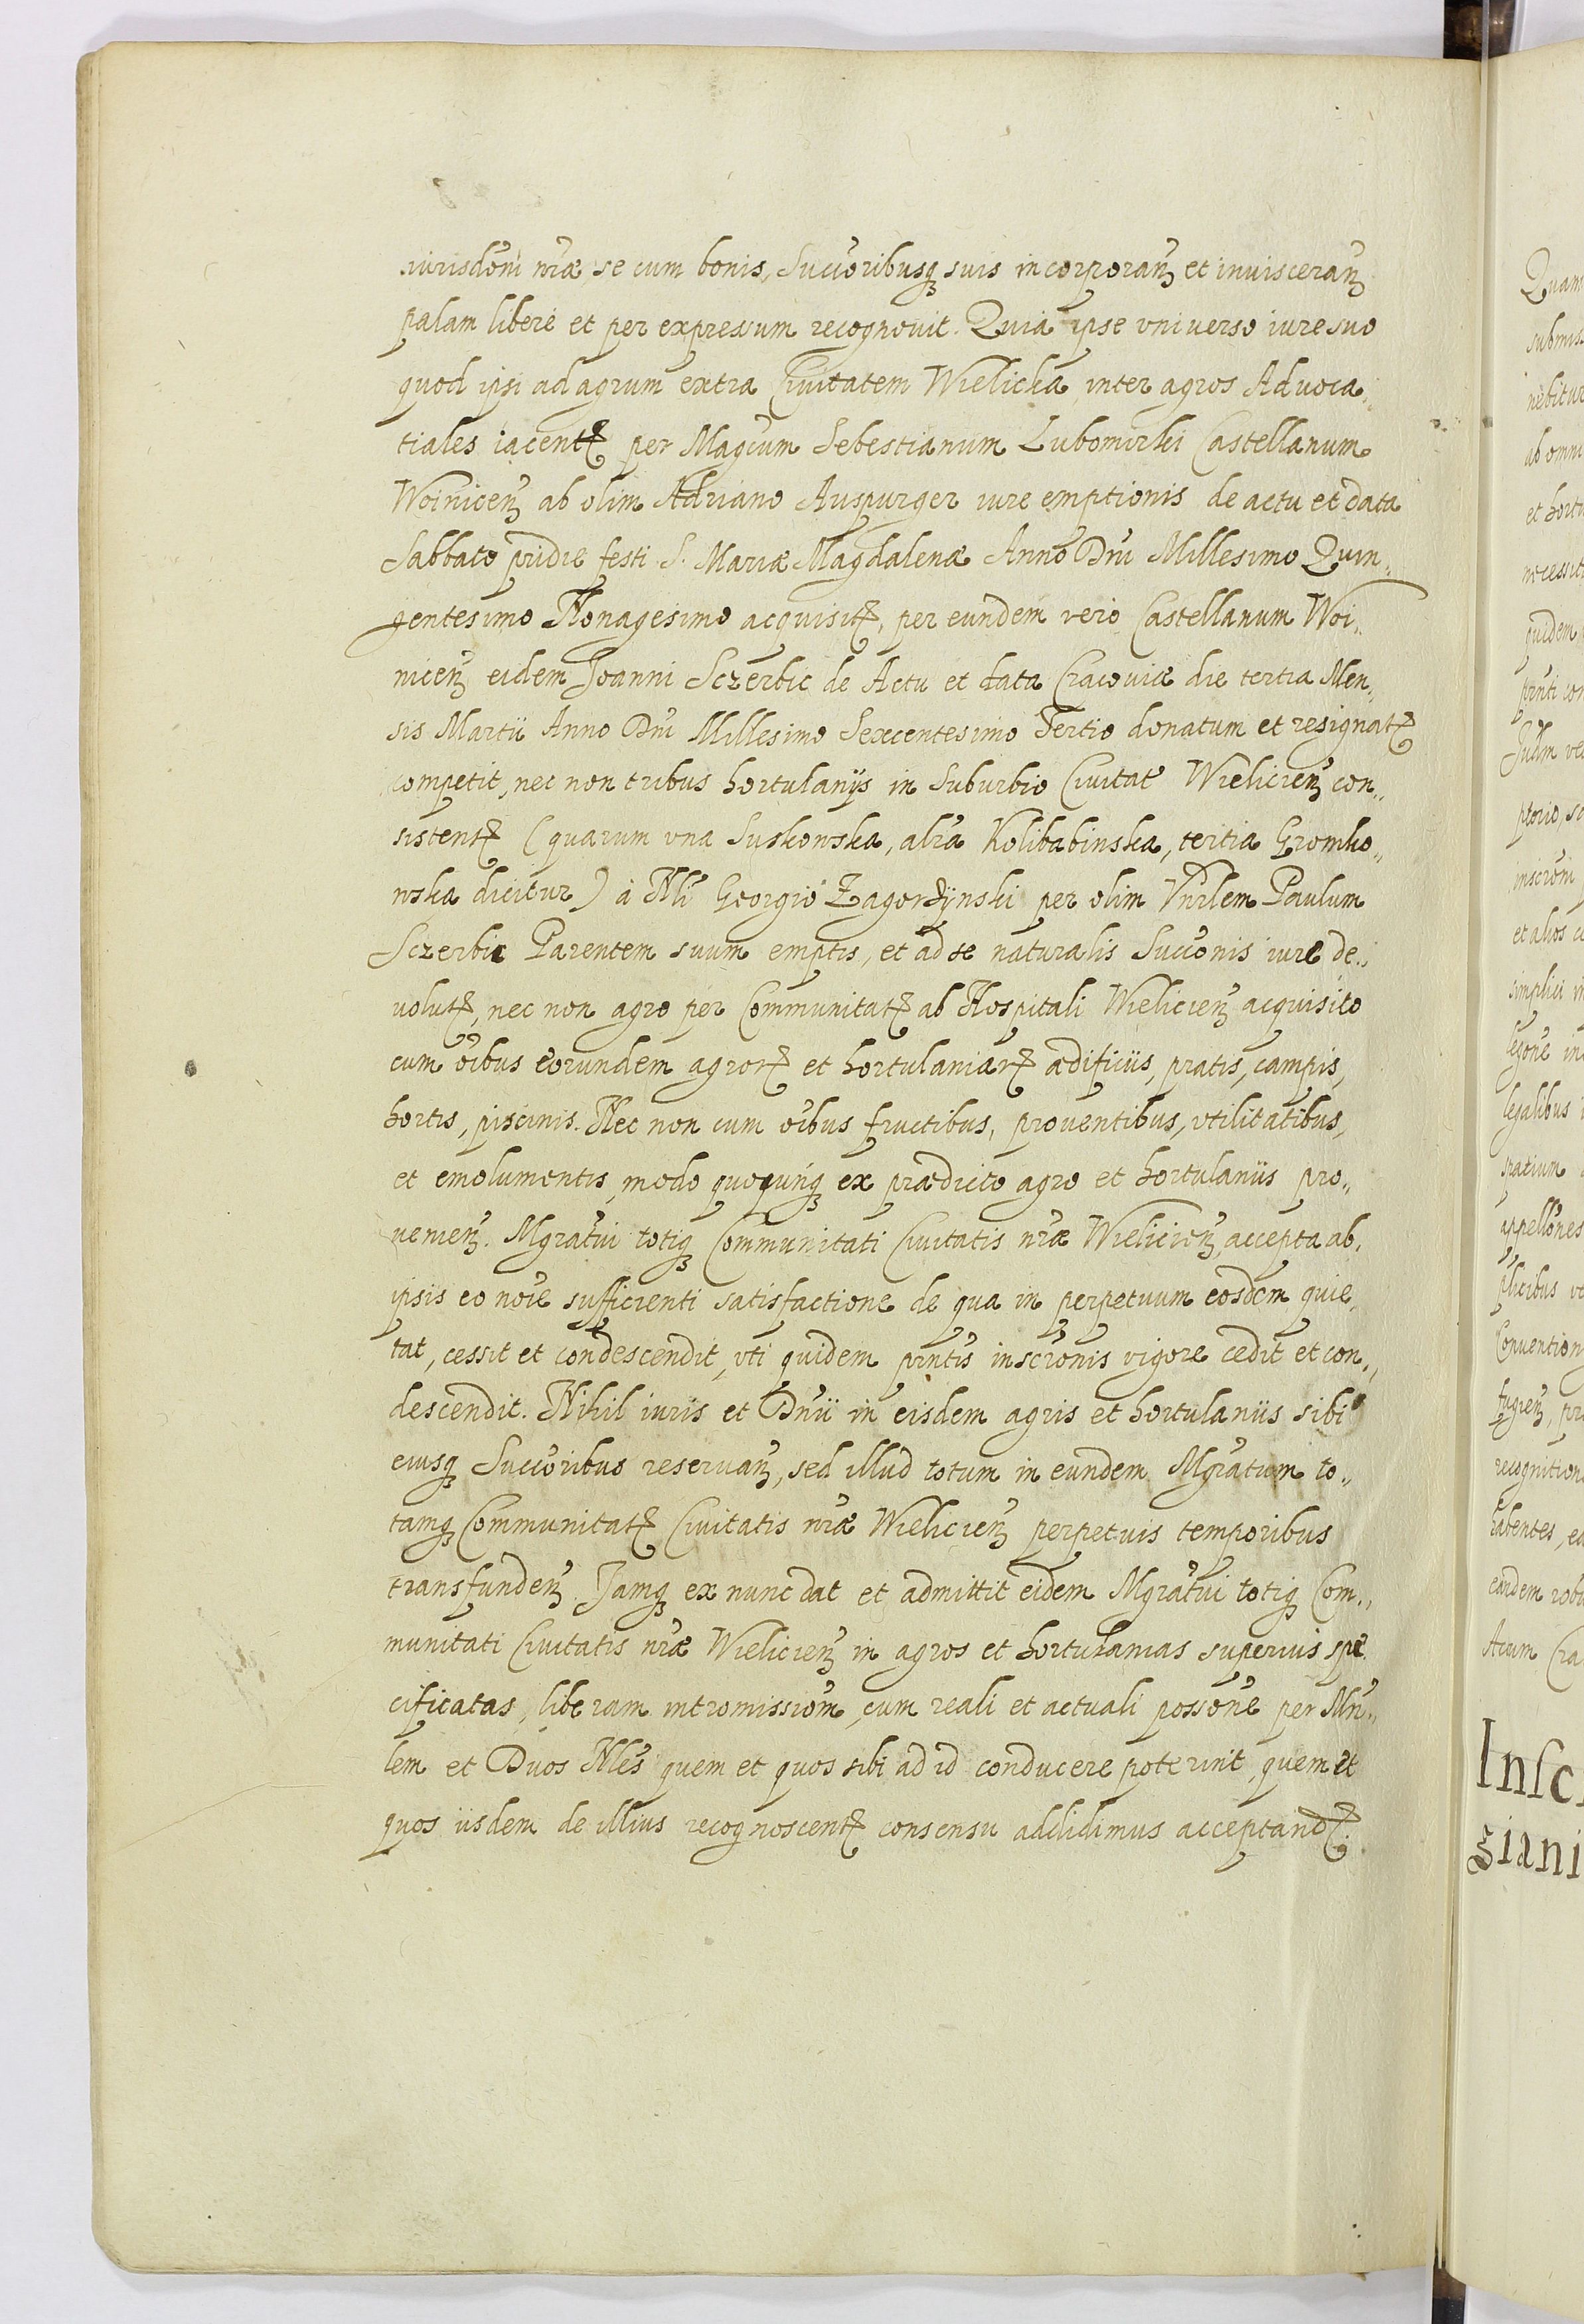 iurisdoni nræ se cum bonis, Succoribusq; suis incorporan̄ et inuisceran̄
palam libere et per expressum recognouit. Quia ipse vniuerso iure suo
quod ipsi ad agrum extra Ciuitatem Wielicka inter agros Aduoca„
tiales iacentē per Magcum Sebestianum Lubomirski Castellanum
Woinicen̄ ab olim Adriano Auspurger iure emptionis de actu et data
Sabbato pridie festi S. Mariæ Magdalenæ Anno Dni Millesimo Quin„
gentesimo Nonagesimo acquisitū, per eundem vero Castellanum Woi„
nicen̄ eidem Joanni Sczerbic de Actu et data Cracouiæ die tertia Men„
sis Martii Anno Dni Millesimo Sexcentesimo Tertio donatum et resignatū
competit, nec non tribus hortulanijs in Suburbio Ciuitat Wielicien̄ con„
sistentē (quarum vna Suskowska, altra Kolibabinska, tertia Gromko„
wska dicitur) à Nli Georgio Zagorzynski per olim Vnrlem Paulum
Sczerbic Parentem suum emptis, et ad se naturalis Succonis iure de„
volutē, nec non agro per Communitatē ab Hospitali Wielicien̄ acquisito
cum oibus eorundem agrorū et hortulaniarū ædificiis, pratis, campis,
hortis, piscinis. Nec non cum oibus fructibus, prouentibus, vtilitatibus,
et emolumentis, modo quoqunq; ex prædicto agro et hortulaniis pro„
uenien̄. Mgratui totiq; Communitati Ciuitatis nræ Wielicien̄, accepta ab„
ipsis eo noie sufficienti satisfactione de qua in perpetuum eosdem quie„
tat, cessit et condescendit, vti quidem pntis inscronis vigore cedit et con„
descendit. Nihil iuris et Dnii in eisdem agris et hortulaniis sibi
eiusq; Succoribus reseruan̄, sed illud totum in eundem Mgratum to„
tamq; Communitatē Ciuitatis nræ Wielicien̄ perpetuis temporibus
transfunden̄. Jamq; ex nunc dat et admittit eidem Mgratui totiq; Com„
munitati Ciuitatis nræ Wielicien̄ in agros et hortulanias superius spe„
cificatas, liberam intromissiom, cum reali et actuali possone per Mn„
lem et Duos Nles quem et quos sibi ad id conducere poterint, quem et
quos iisdem de illius recognoscentē consensu addidimus acceptandū.